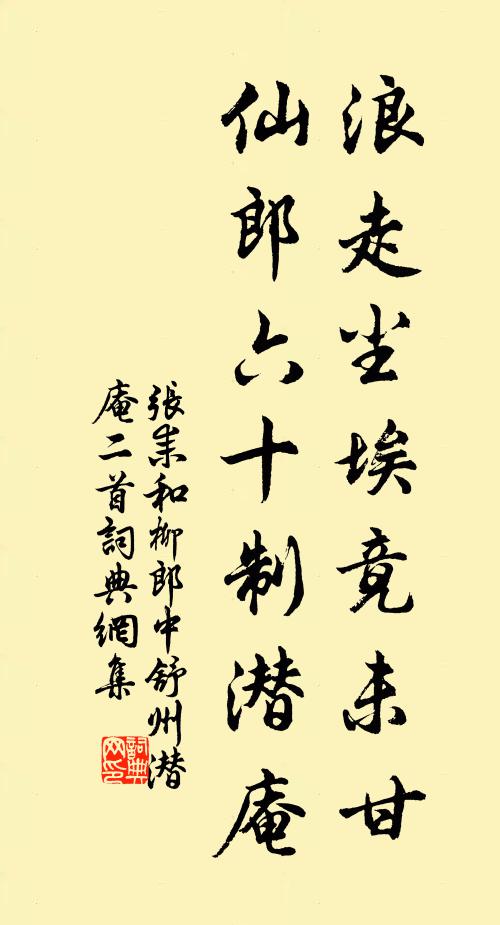 浪走尘埃竟未甘
仙郎六十制潜庵
張耒和柳郎中舒州潜
庵二首詞典網集
詞典
网印